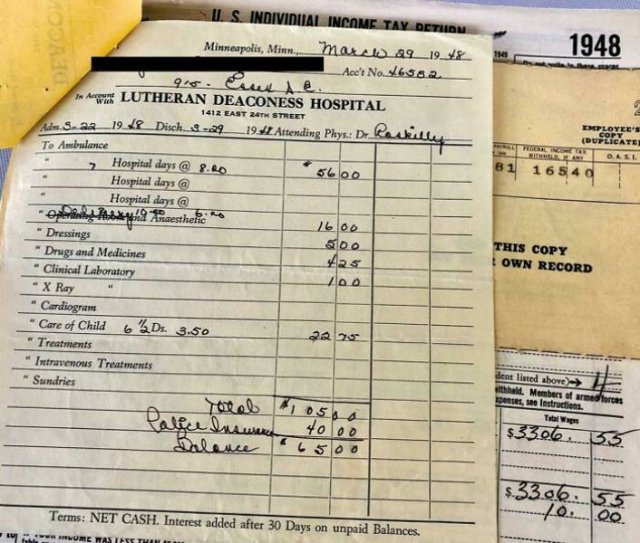 U. S. INDIVIDUAL INCOME TAX RETURN
1949
1948
DEACON
Minneapolis, Minn., March 29 1948
Acc't No. 46582
915- Essex S.E.
In Account With LUTHERAN DEACONESS HOSPITAL
1412 EAST 24TH STREET
Adm. 3-22 1948 Disch. 3-29 1948 Attending Phys.: Dr Roskilly
To Ambulance
" 7 Hospital days @ 8.00 $56 00
" Hospital days @
" Hospital days @
" Operating Room and Anaesthetic Delivery 10.00 6.00 16 00
" Dressings 5 00
" Drugs and Medicines 4 25
" Clinical Laboratory 1 00
" X Ray "
" Cardiogram
" Care of Child 6 1/2 Ds. 3.50 22 75
" Treatments
" Intravenous Treatments
" Sundries
Total $105 00
Police Insurance 40 00
Balance $65 00
Terms: NET CASH. Interest added after 30 Days on unpaid Balances.
EMPLOYEE'S
COPY
(DUPLICATE)
FEDERAL INCOME TAX
WITHHELD, IF ANY
O. A. S. I.
81 165 40
THIS COPY
OWN RECORD
listed above) → 4
withheld. Members of armed forces
see Instructions.
Total Wages
$3306. 55
$3306. 55
10. 00
INCOME WAS LESS THAN